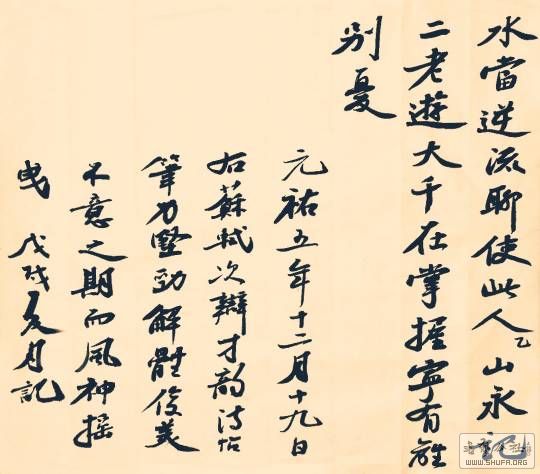 水當逆流聊使此人乙山永記
二老遊大千在掌握寧有離
別憂
元祐五年十二月十九日
右蘇軾次辯才韵诗帖
筆力堅勁解體俊美
不意之期而風神搖
曳 戊戌夏月記
WWW.SHUFA.ORG